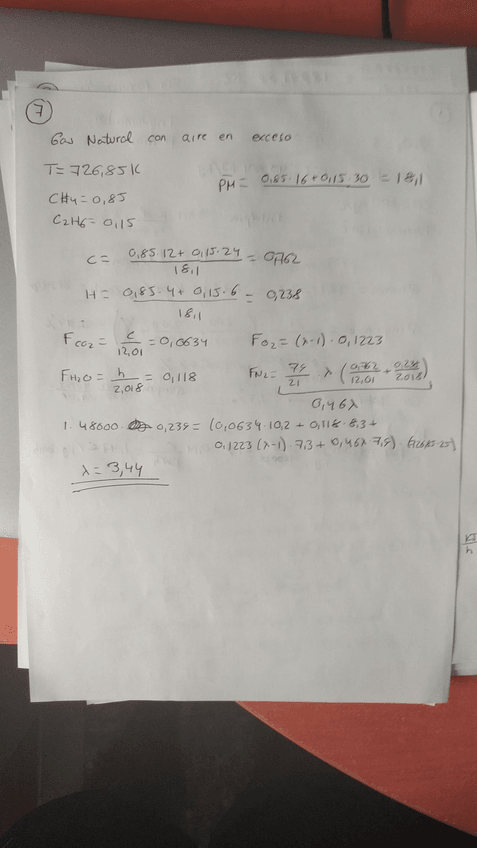 7
Gas Natural con aire en exceso
T= 726,85K
P̄M = (0,85·16+0,15·30)/ = 18,1
CH4= 0,85
C2H6= 0,15
C= (0,85·12+ 0,15·24)/18,1 = 0,762
H= (0,85·4+ 0,15·6)/18,1 = 0,238
FCO2= c/12,01 = 0,0634 FO2= (λ-1)·0,1223
FH2O= h/2,018 = 0,118 FN2= 79/21 · λ (0,762/12,01 + 0,238/2,018)
0,46λ
1· 48600· 0,239= (0,0634·10,2 + 0,118·8,3+
0,1223 (λ-1)·7,3+ 0,46λ·7,9) (726,85-25)
λ= 3,44
KJ/h